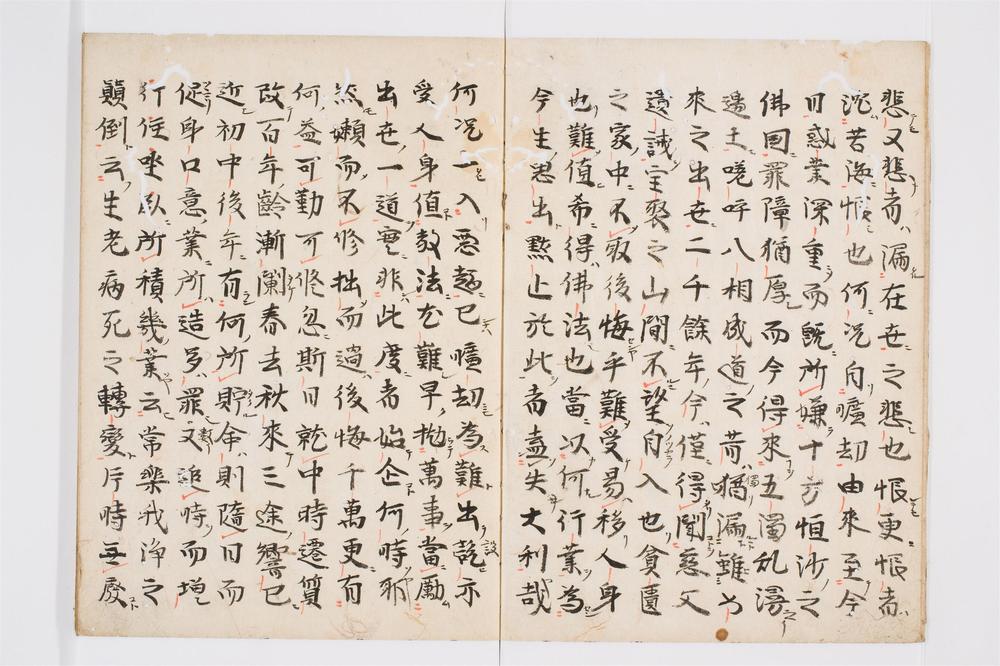 悲又悲者漏在世之悲也恨更恨者
沈苦海恨也何況自曠劫由來至今
日惑業深重而既所嫌十方恒沙之
佛国罪障猶厚而今得來五濁乱漫
邊土嗟呼八相成道之昔獨漏雖如
來之出世二千餘年今僅得聞慈父
遺誡宝聚之山間不望自入也貧匱
之家中不取後悔乎難受易移人身
也難値希得佛法也當以何行業為
今生思出黙止於此者盍失大利哉
何況一入悪趣已曠劫為難出設示
受人身値教法尤難早抛萬事當勵
出世一道寔非此度者始企何時耶
然嬾而不修拙而過後悔千萬更有
何益可勤可修忽斯日乾中時遷質
改百年齡漸闌春去秋來三途響已
近初中後年有何所貯命則隨日而
促身口意業所造多罪又追時而増
行住坐臥所積幾業云常楽我浄之
顛倒云生老病死之轉變片時無廢